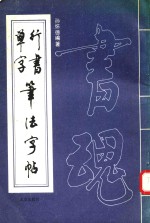 行書
單字
筆法字帖
書魂